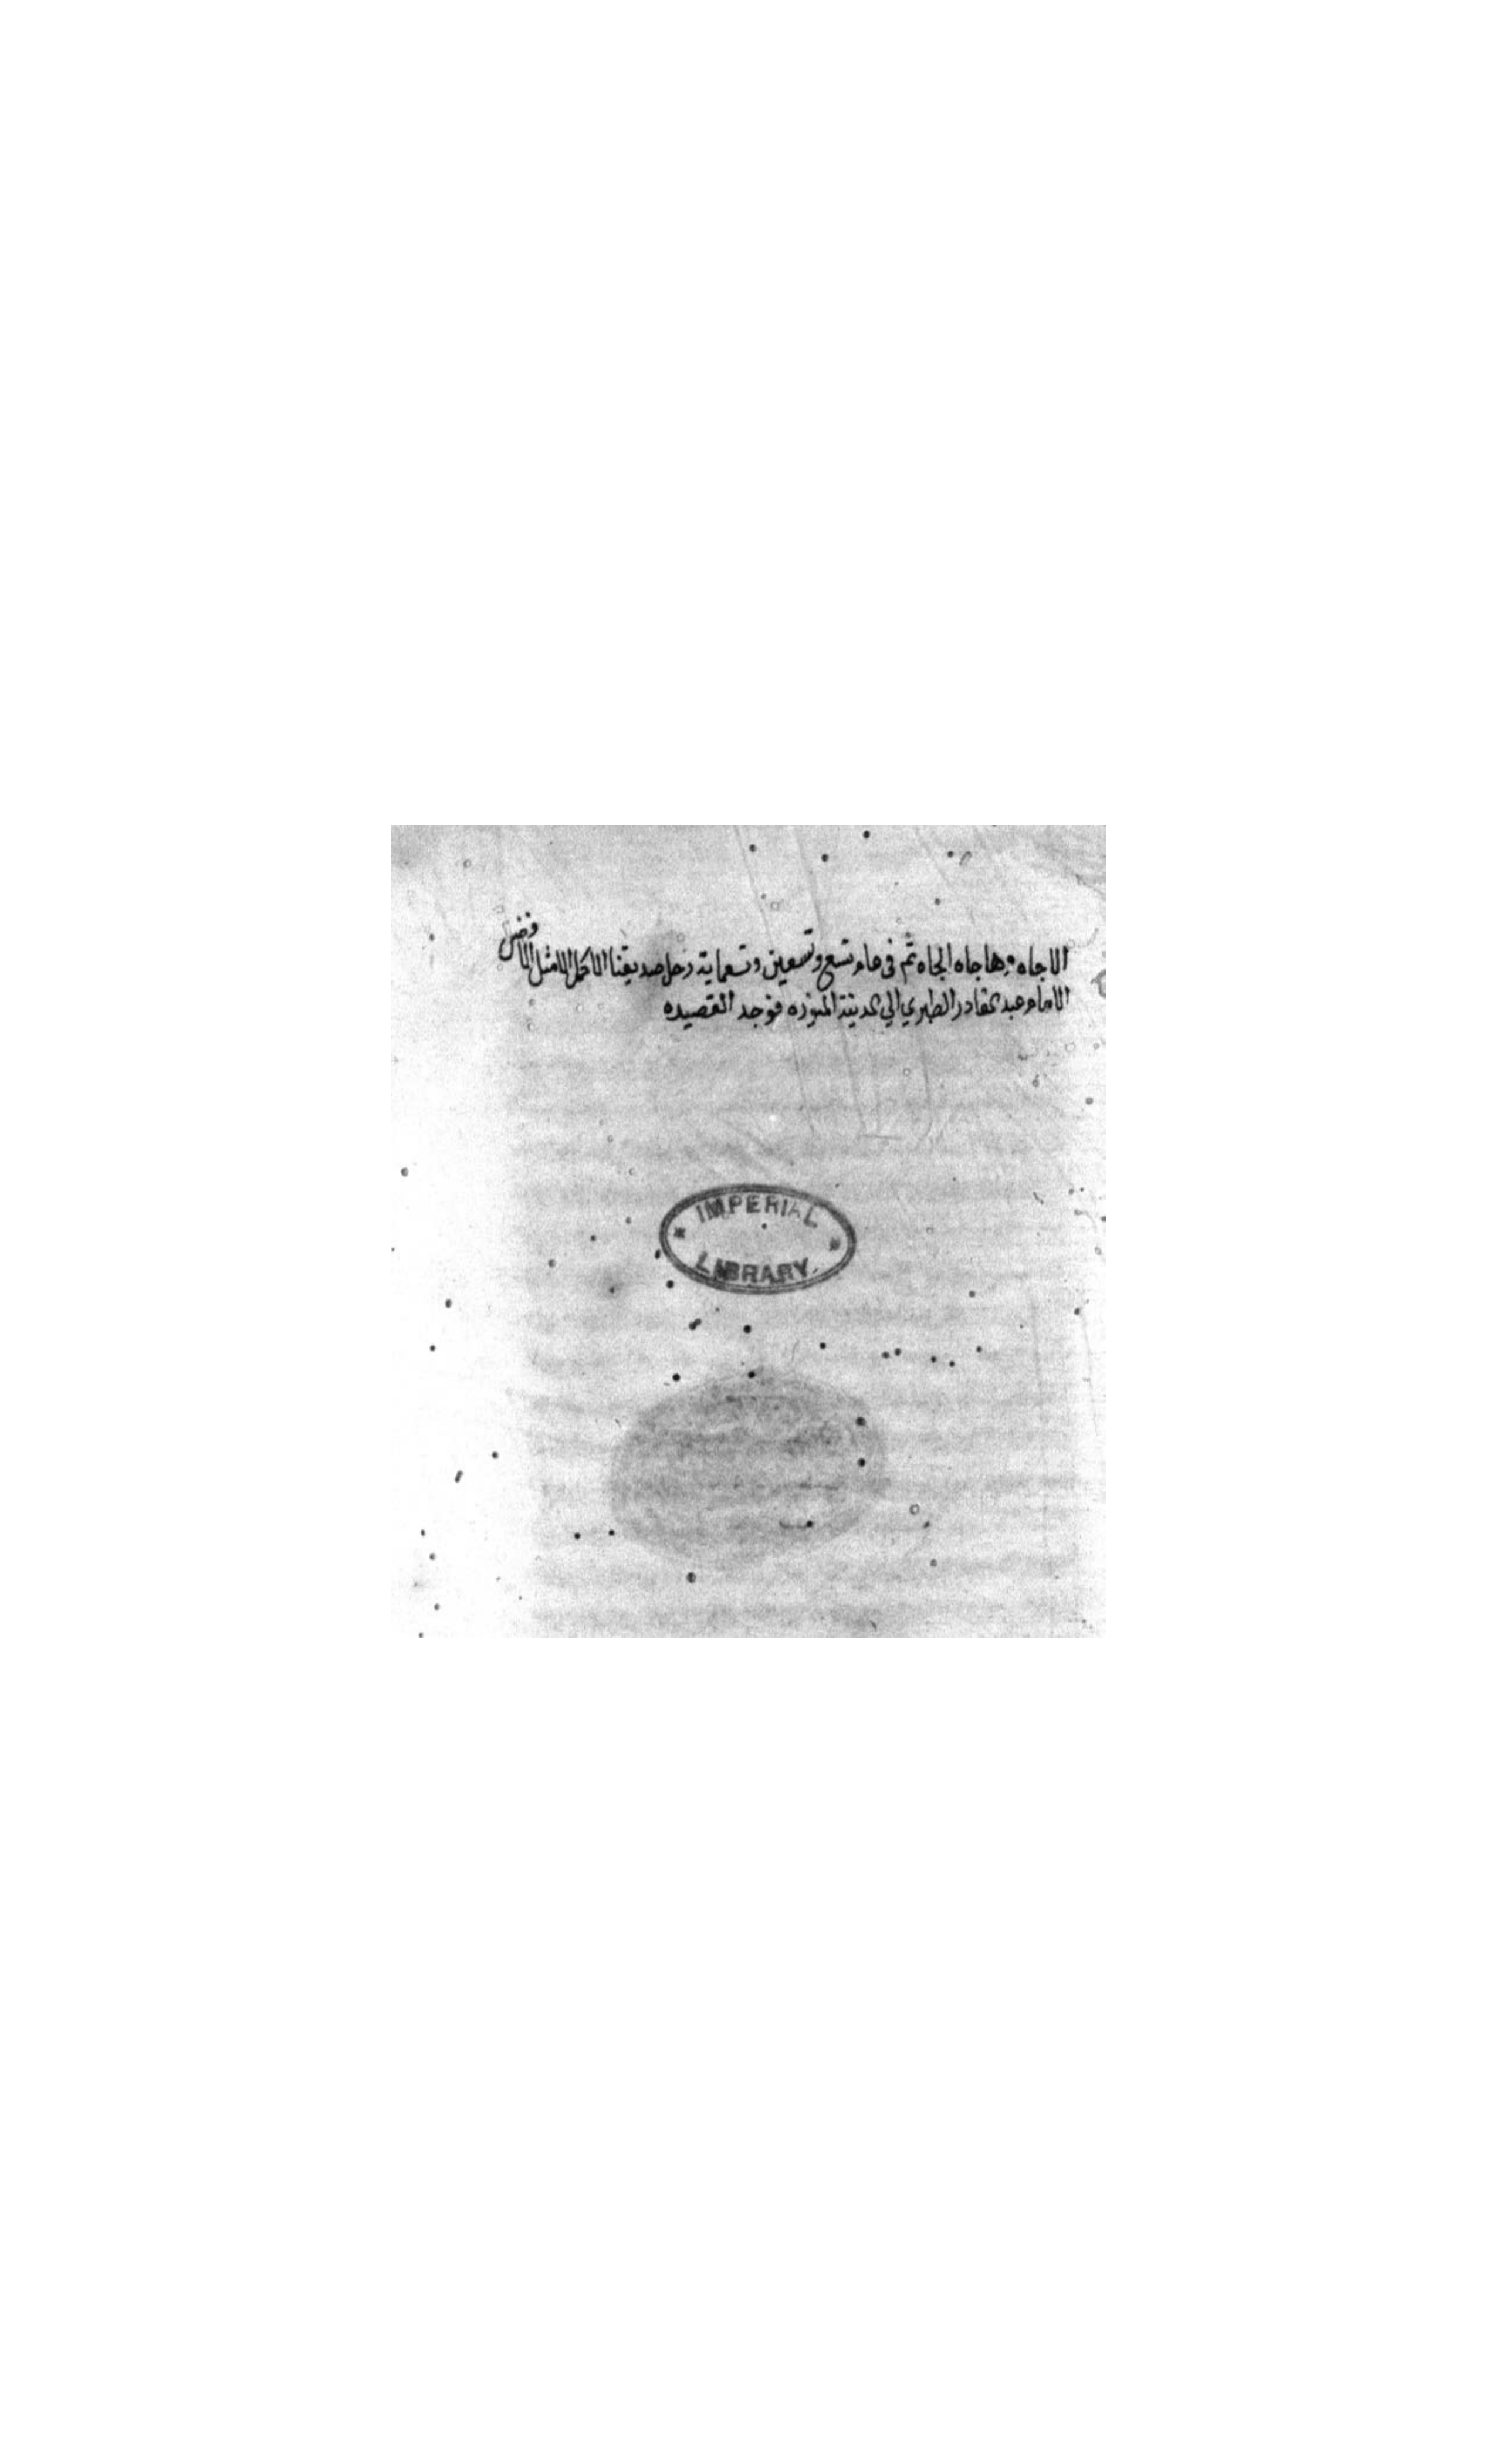 الاجاه وهاجاه الجاه ثم فى عام تسع وتسعين وتسعماية رحل صديقنا الاكمل الامثل الافضل
الامام عبد القادر الطبري الي المدينة المنوره فوجد القصيده
IMPERIAL
LIBRARY